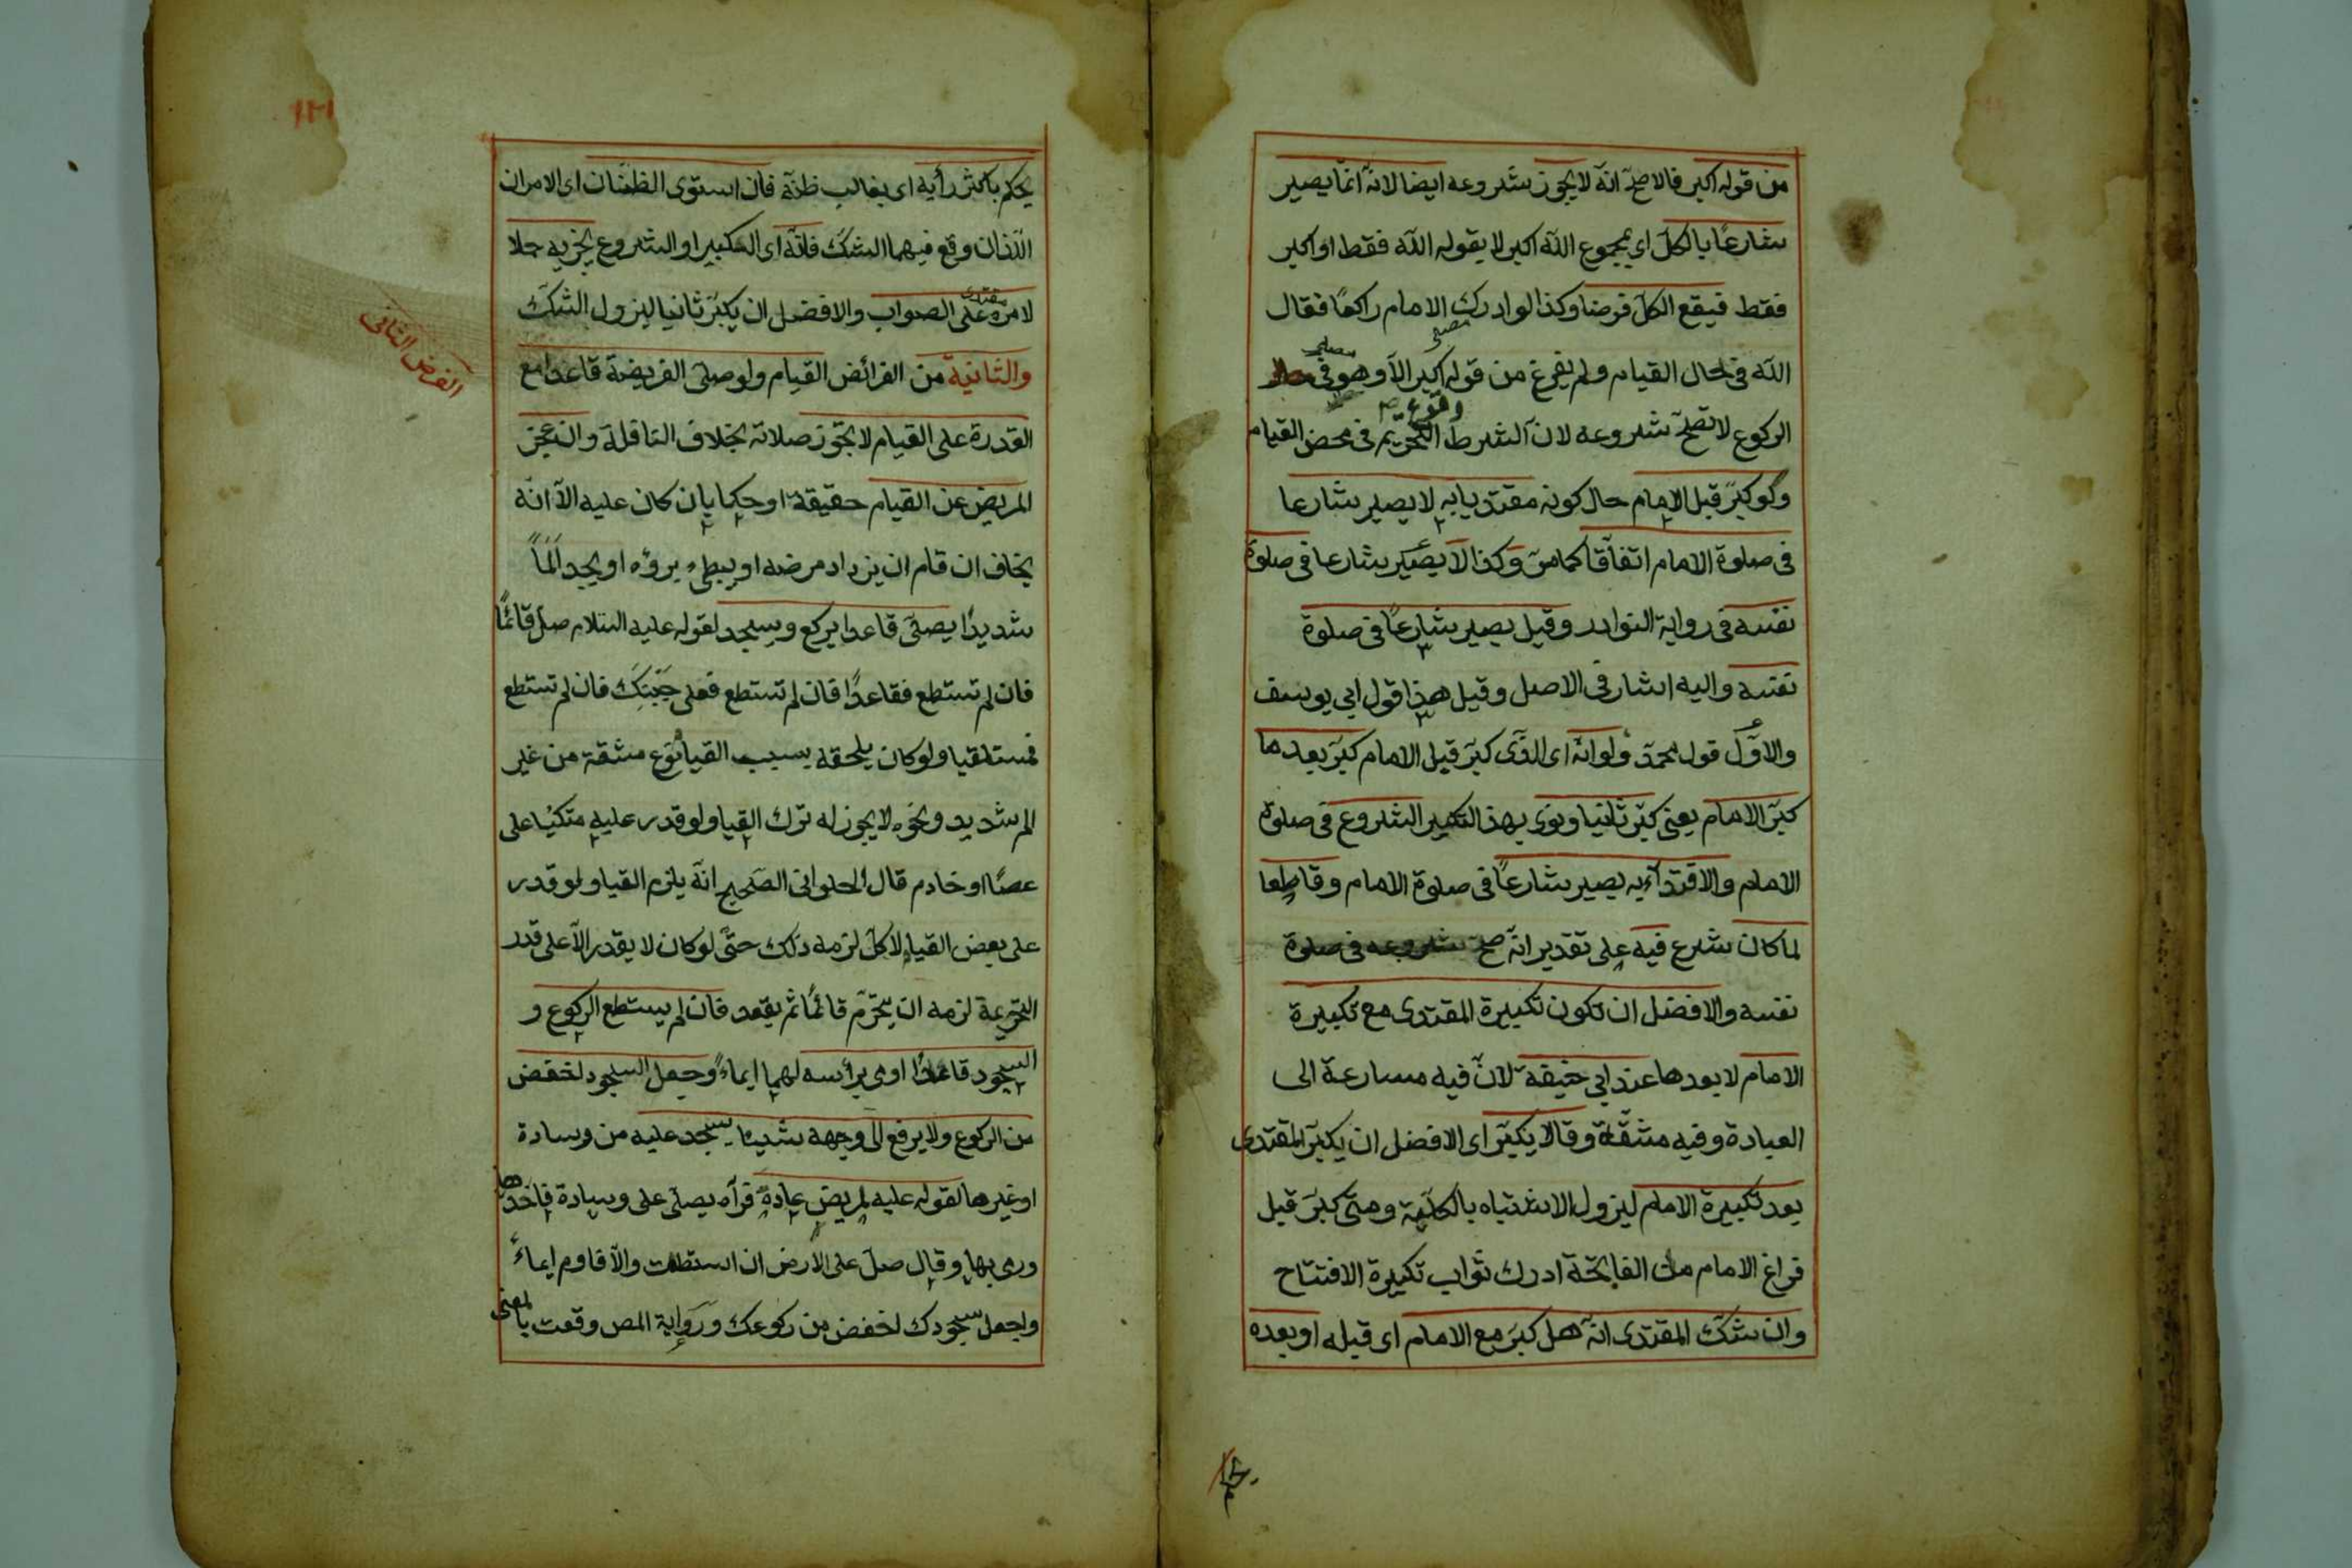 من قوله اكبر فالاصح انه لا يجوز شروعه ايضا لانه انما يصير
شارعا بالكل اى بمجموع الله اكبر لا بقوله الله فقط او اكبر
فقط فيقع الكل فرضا وكذا لو ادرك الامام راكعا فقال
الله فى حال القيام ولم يفرغ من قوله اكبر الا وهو فى
الركوع لا تصح شروعه لان الشرط وقوع التحريم فى محض القيام
ولو كبر قبل الامام حال كونه مقتديا به لا يصير شارعا
فى صلوة الامام اتفاقا كما مر وكذا لا يصير شارعا فى صلوة
نفسه فى رواية النوادر وقيل يصير شارعا فى صلوة
نفسه واليه اشار فى الاصل وقيل هذا قول ابى يوسف
والاول قول محمد ولو انه اى الذى كبر قبل الامام كبر بعد ما
كبر الامام يعنى كبر ثانيا ونوى بهذا التكبير الشروع فى صلوة
الامام والاقتداء به يصير شارعا فى صلوة الامام وقاطعا
لما كان شرع فيه على تقدير انه صح شروعه فى صلوة
نفسه والافضل ان تكون تكبيرة المقتدى مع تكبيرة
الامام لا بعدها عند ابى حنيفة لان فيه مسارعة الى
العبادة وفيه مشقة وقالا يكبر اى الافضل ان يكبر المقتدى
بعد تكبيرة الامام ليزول الاشتباه بالكلية ومتى كبر قبل
فراغ الامام من الفاتحة ادرك ثواب تكبيرة الافتتاح
وان شك المقتدى انه هل كبر مع الامام اى قبله او بعده
يحكم باكثر رأيه اى بغالب ظنه فان استوى الظنان اى الامران
اللذان وقع فيهما الشك فانه اى التكبير او الشروع يجزيه حملا
لامره على الصواب والافضل ان يكبر ثانيا ليزول الشك
والثانية من الفرائض القيام ولو صلى الفريضة قاعدا مع
القدرة على القيام لا يجوز صلاته بخلاف النافلة وان عجز
المريض عن القيام حقيقة او حكما بان كان عليه الا انه
يخاف ان قام ان يزداد مرضه او يبطىء برؤه او يجد الما
شديدا يصلى قاعدا يركع ويسجد لقوله عليه السلام صل قائما
فان لم تستطع فقاعدا فان لم تستطع فعلى جنبك فان لم تستطع
فمستلقيا ولو كان يلحقه بسبب القيام نوع مشقة من غير
الم شديد ونحوه لا يجوز له ترك القيام ولو قدر عليه متكئا على
عصا او خادم قال الحلوانى الصحيح انه يلزم القيام ولو قدر
على بعض القيام لا كل لزمه ذلك حتى لو كان لا يقدر الا على قدر
التحريمة لزمه ان يتحرم قائما ثم يقعد فان لم يستطع الركوع و
السجود قاعدا اومى برأسه لهما ايماء وجعل السجود اخفض
من الركوع ولا يرفع الى وجهه شيئا يسجد عليه من وسادة
او غيرها لقوله عليه لمريض عاده فرآه يصلى على وسادة فاخذها
ورمى بها وقال صل على الارض ان استطعت والا فاوم ايماء
واجعل سجودك اخفض من ركوعك ورواية المص وقعت بالمعنى
الفرض الثانى